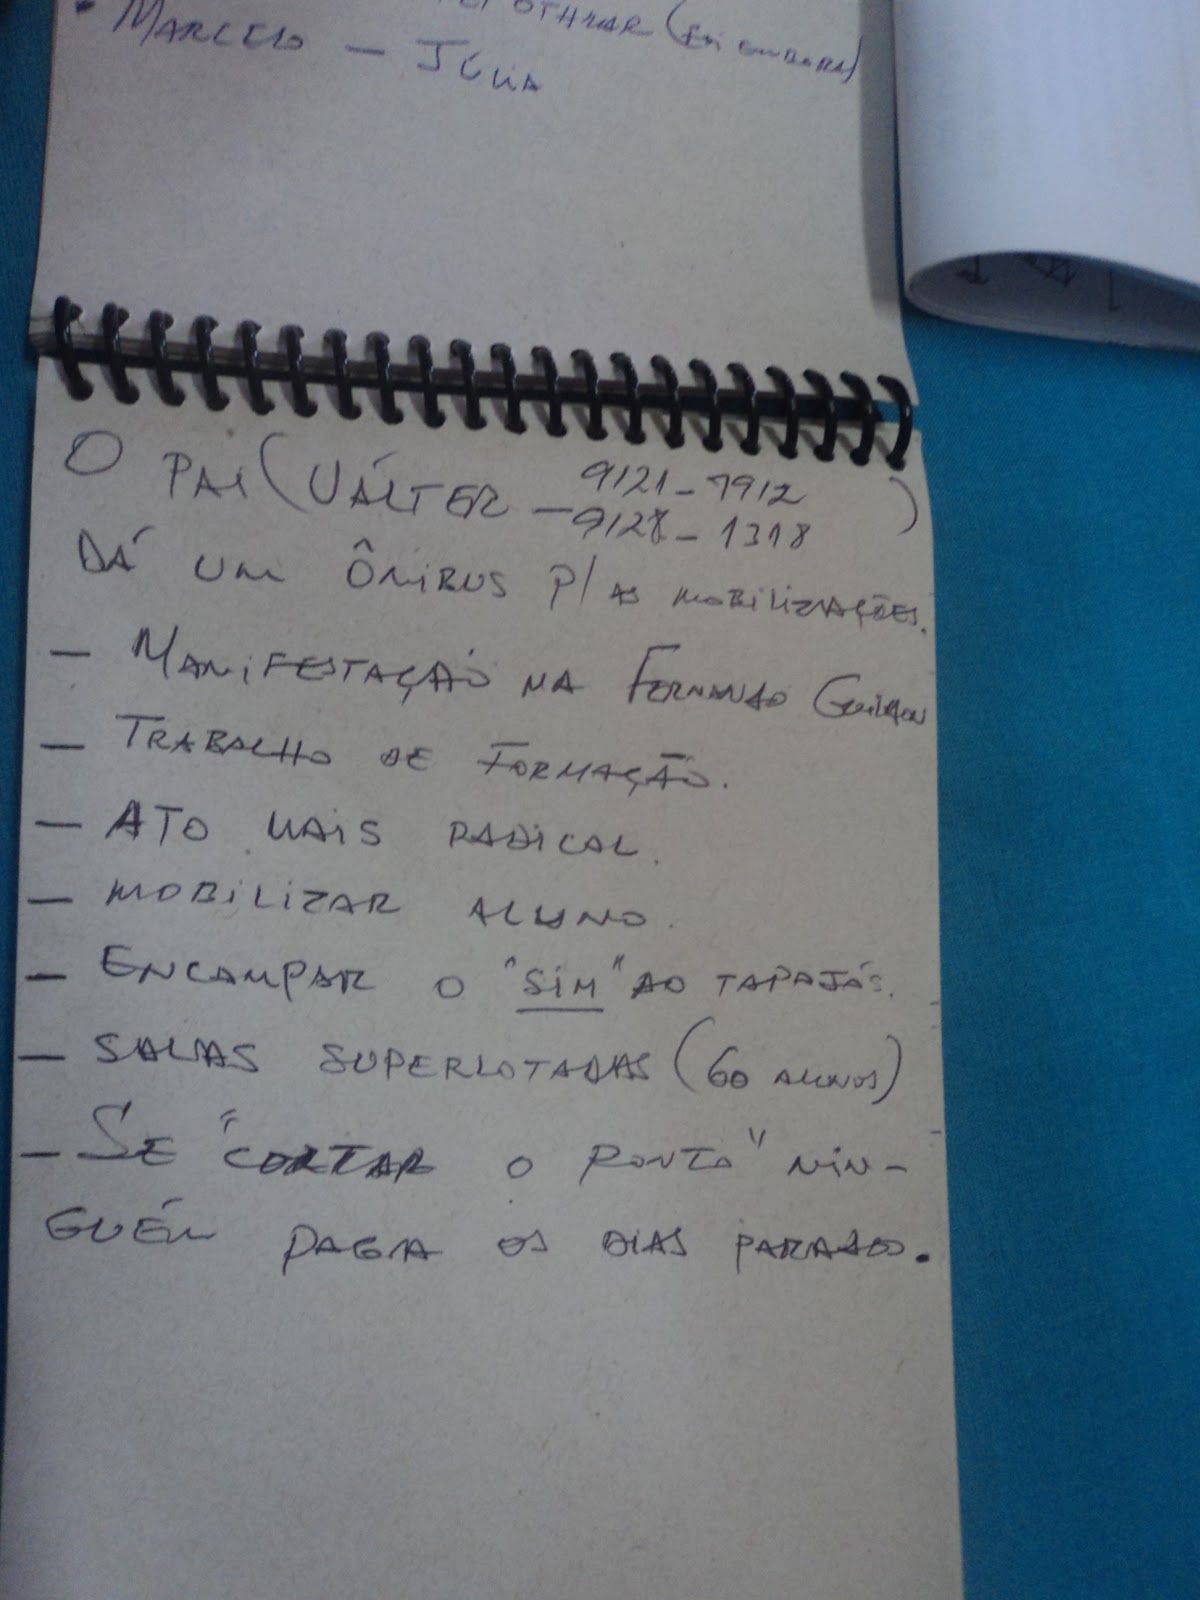 OTHMAR (FOI EMBORA)
• MARCELO – JÚLIA
O PAI (VÁLTER – 9121-7912
9128-1318 )
DÁ UM ÔNIBUS P/ AS MOBILIZAÇÕES.
– MANIFESTAÇÃO NA FERNANDO GUILHON
– TRABALHO DE FORMAÇÃO.
– ATO MAIS RADICAL.
– MOBILIZAR ALUNO.
– ENCAMPAR O "SIM" AO TAPAJÓS.
– SALAS SUPERLOTADAS (60 ALUNOS)
– SE "CORTAR O PONTO" NIN-
GUÉM PAGA OS DIAS PARADOS.